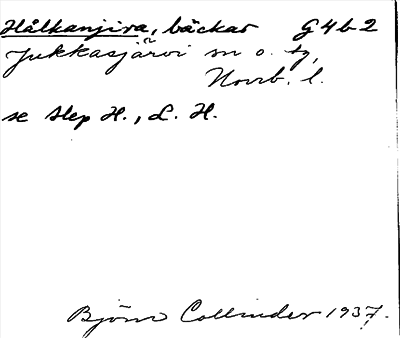 Hålkanjira, bäckar G4b2
Jukkasjärvi sn o. tg,
Norrb. l.
se Step H., L. H.
Björn Collinder 1937.